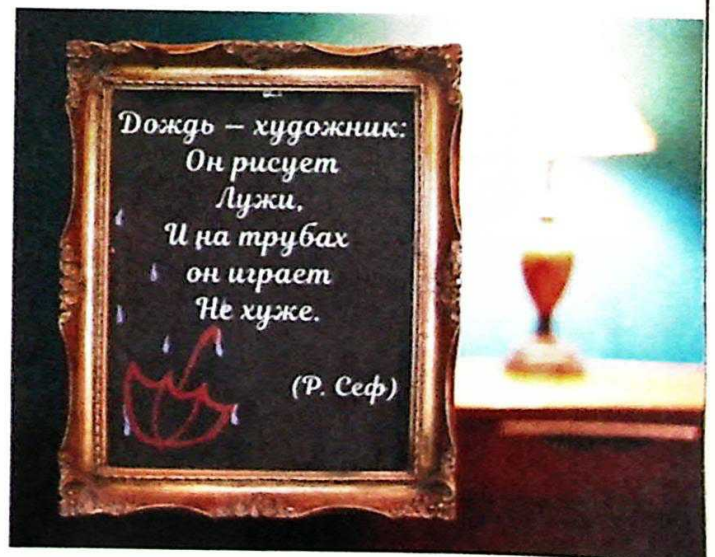 Дождь – художник:
Он рисует
Лужи,
И на трубах
он играет
Не хуже.
(Р. Сеф)